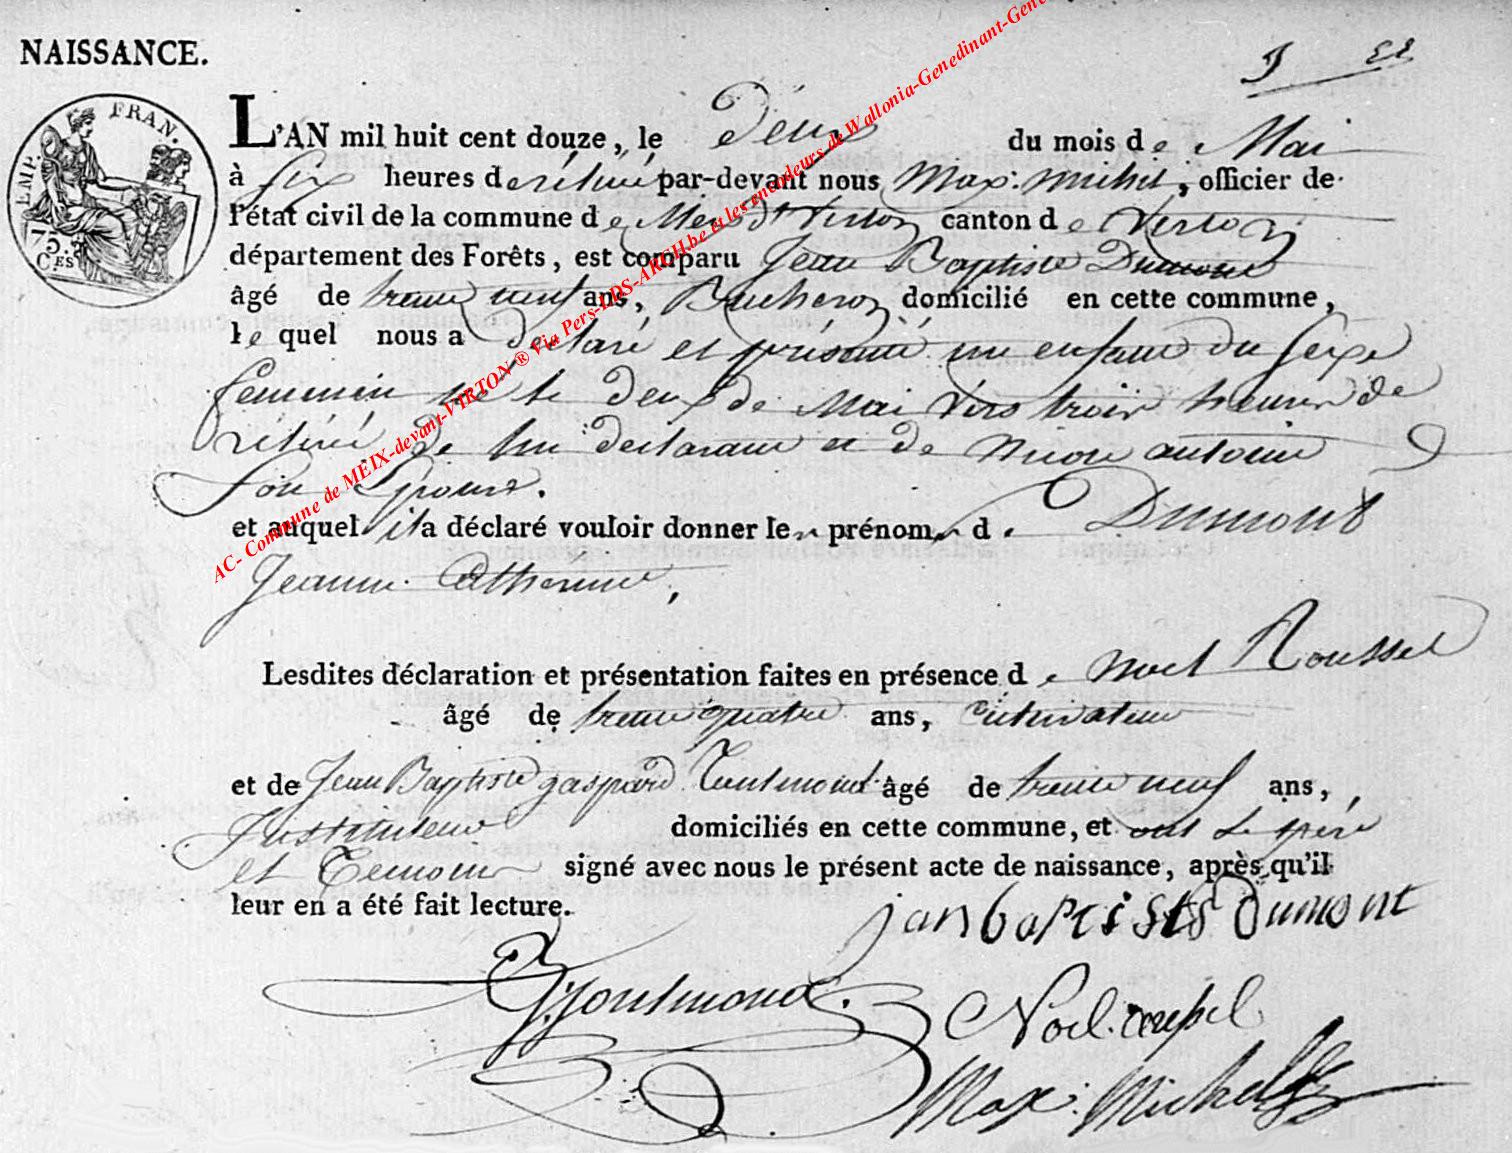 NAISSANCE.
EMP. FRAN.
75.
C.ES
L'AN mil huit cent douze, le deux du mois de Mai
à six heures de relevé par-devant nous Max: Michel, officier de
l'état civil de la commune de Meix dt Virton canton de Virton
département des Forêts, est comparu Jean Baptiste Dumont
âgé de trente neuf ans, Bucheron domicilié en cette commune,
lequel nous a déclaré et présenté un enfant du sexe
feminin né le deux de Mai vers trois heures de
relevé, de lui déclarant et de antoine
son Epouse.
et auquel il a déclaré vouloir donner les prénoms de Dumont
Jeanne Catherine,
Lesdites déclaration et présentation faites en présence de Noel Roussel
âgé de trente quatre ans, Cultivateur
et de Jean Baptiste gaspard âgé de trente neuf ans,
Instituteur domiciliés en cette commune, et ont le père
et Temoins signé avec nous le présent acte de naissance, après qu'il
leur en a été fait lecture.
jan baptiste dumont
Noel
Max: Michel
AC- Commune de MEIX-devant-VIRTON ® Via Pers-LDS-ARCH.be et les encodeurs de Wallonia-Genedinant-Gene